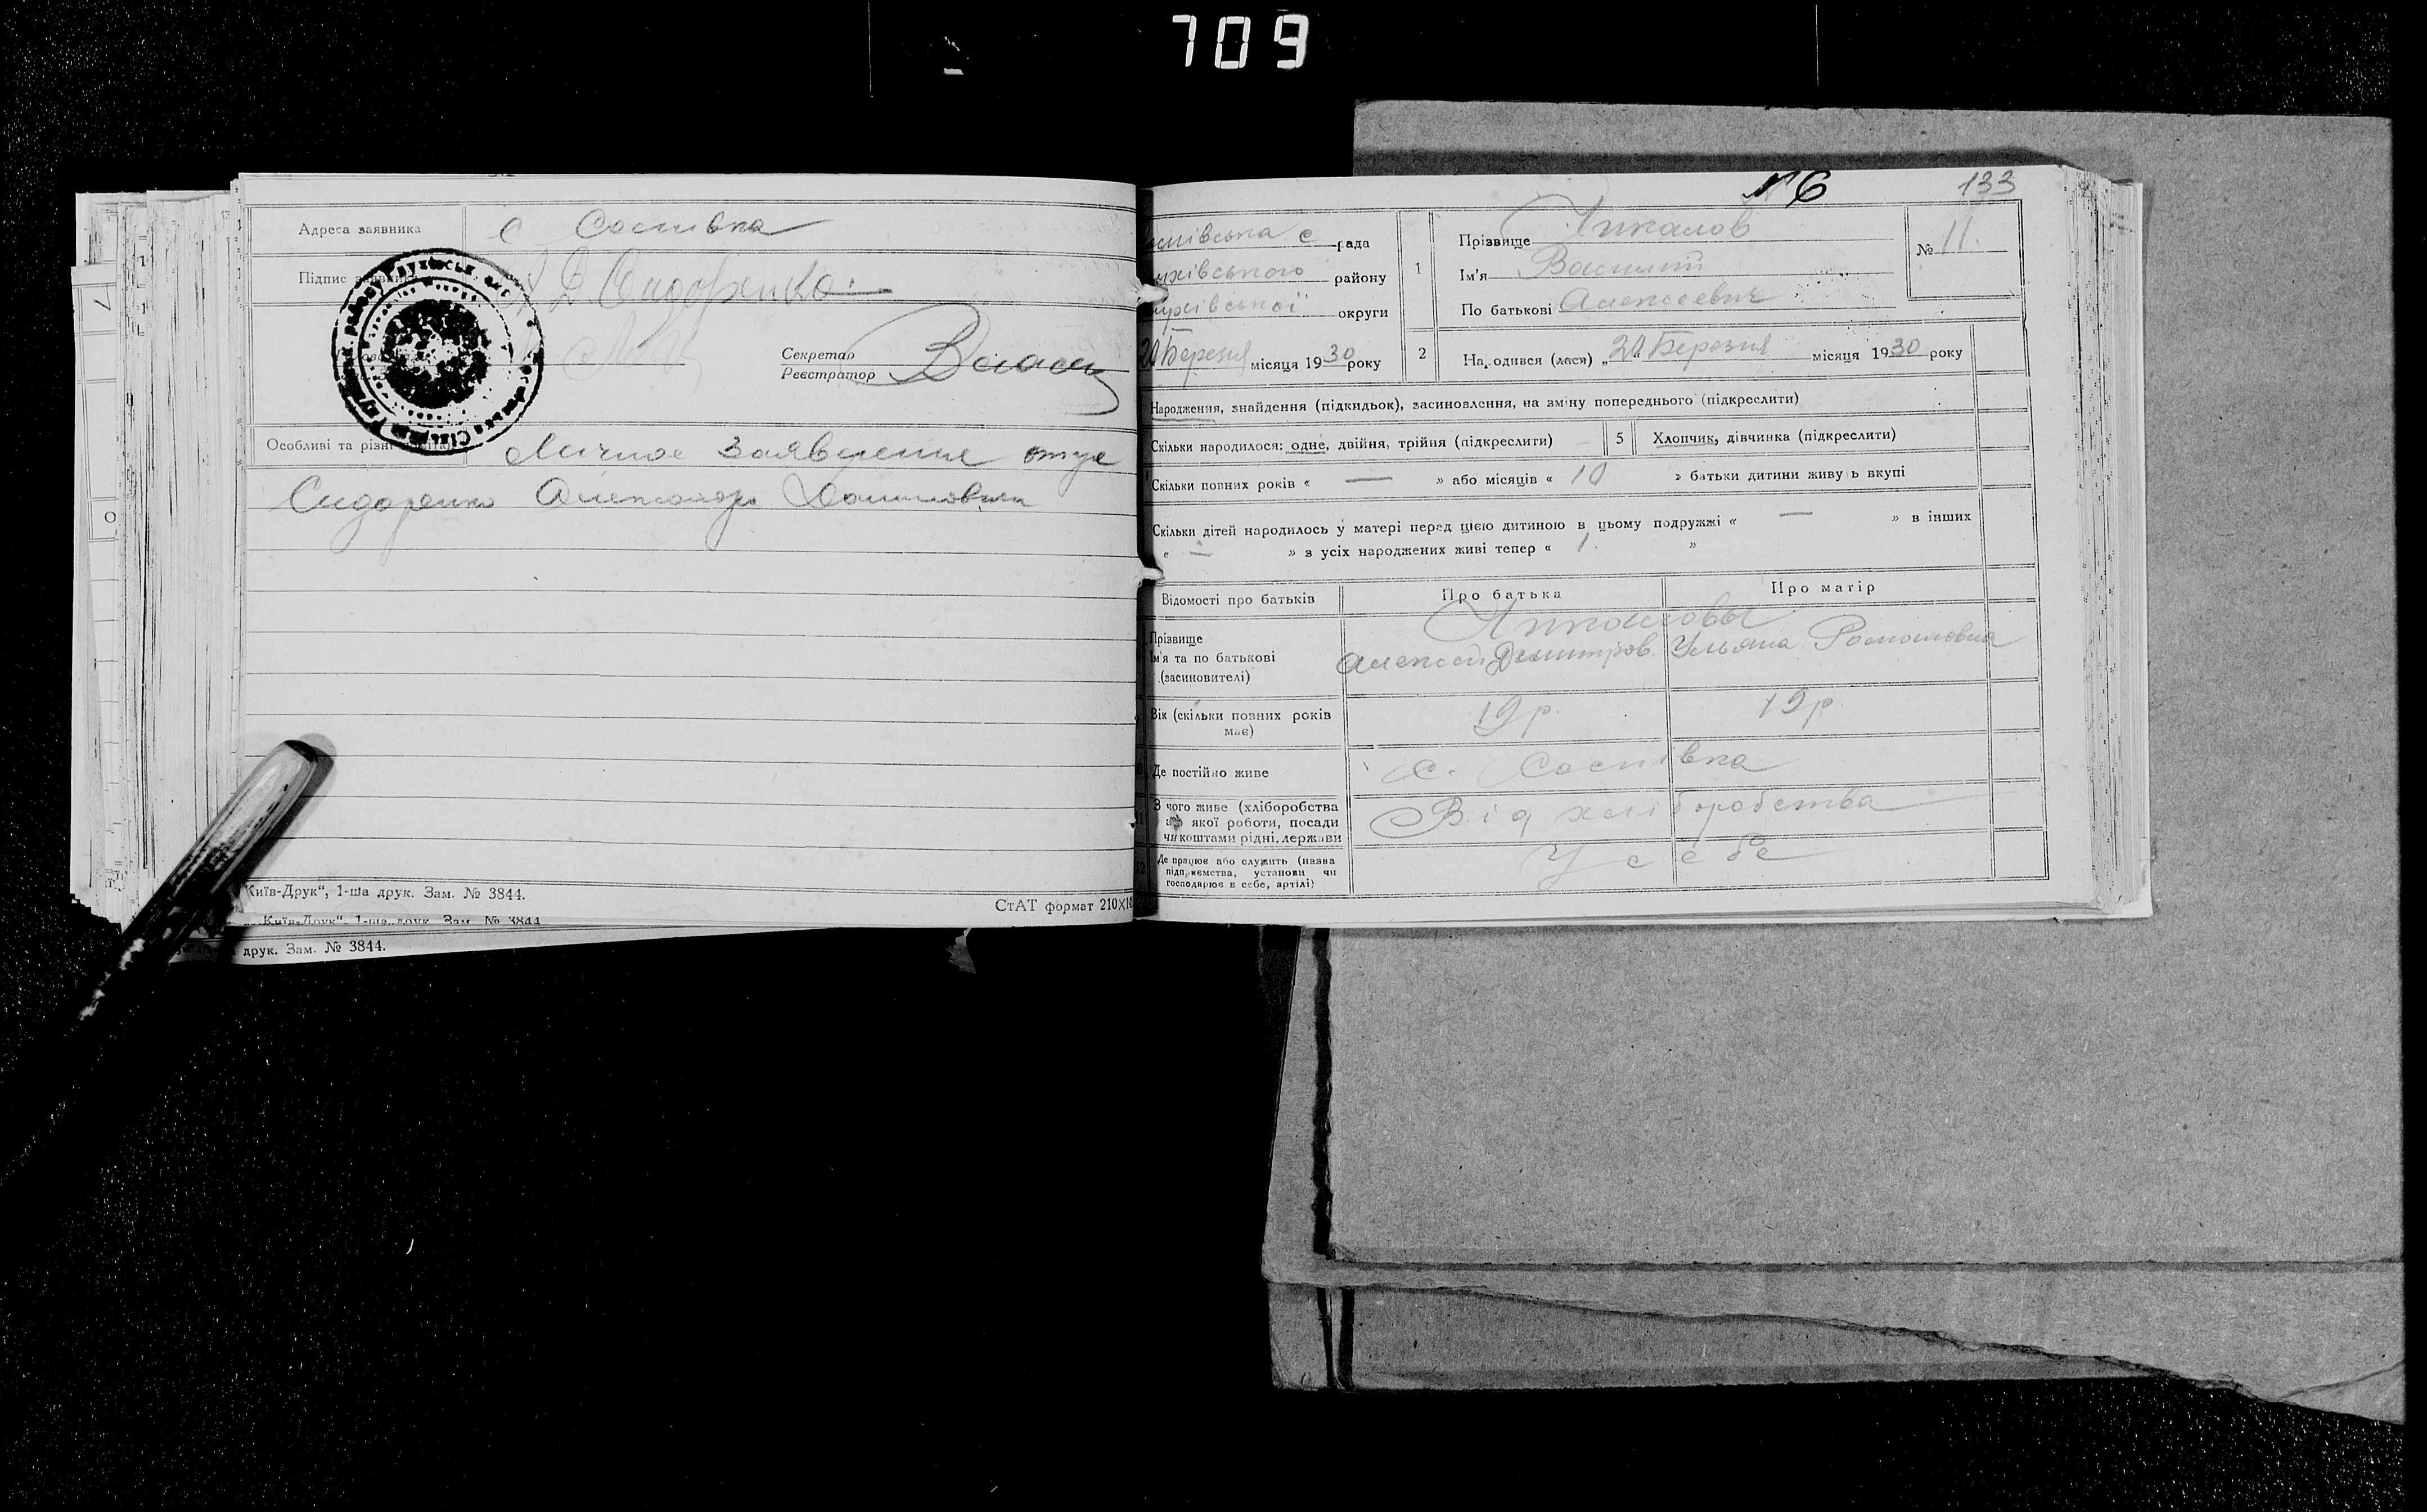 709
Адреса заявника с Соснівка
Підпис
Секретар
Реєстратор
Особливі та різні Личное заявление отца
Сидоренко Александра Даниловича
Київ-Друк“, 1-ша друк. Зам. № 3844.
СтАТ формат 210×
Київ-Друк“, 1-ша друк. Зам. № 3844
друк. Зам. № 3844.
№6 133
рада
району
округи
20 Березня місяця 1930 року
1
Прізвище
Ім'я Василий
По батькові Алексеевич
№ 11.
2 Народився (лася) „ Березня місяця 1930 року
Народження, знайдення (підкидьок), засиновлення, на зміну попереднього (підкреслити)
Скільки народилося: одне, двійня, трійня (підкреслити) 5 Хлопчик, дівчинка (підкреслити)
Скільки повних років « — » або місяців « 10 » батьки дитини живуть вкупі
Скільки дітей народилось у матері перед цією дитиною в цьому подружжі « — » в інших
« — » з усіх народжених живі тепер « 1. »
Відомості про батьків Про батька Про матір
Прізвище
Ім'я та по батькові Алексей Дмитров. Ульяна Романовна
(засиновителі)
Вік (скільки повних років має) 19 р. 19 р
Де постійно живе с. Соснівка
З чого живе (хліборобства
якої роботи, посади
чи коштами рідні, держави Від хліборобства
12 Де працює або служить (назва
підприємства, установи чи
господарює в себе, артілі) У себе